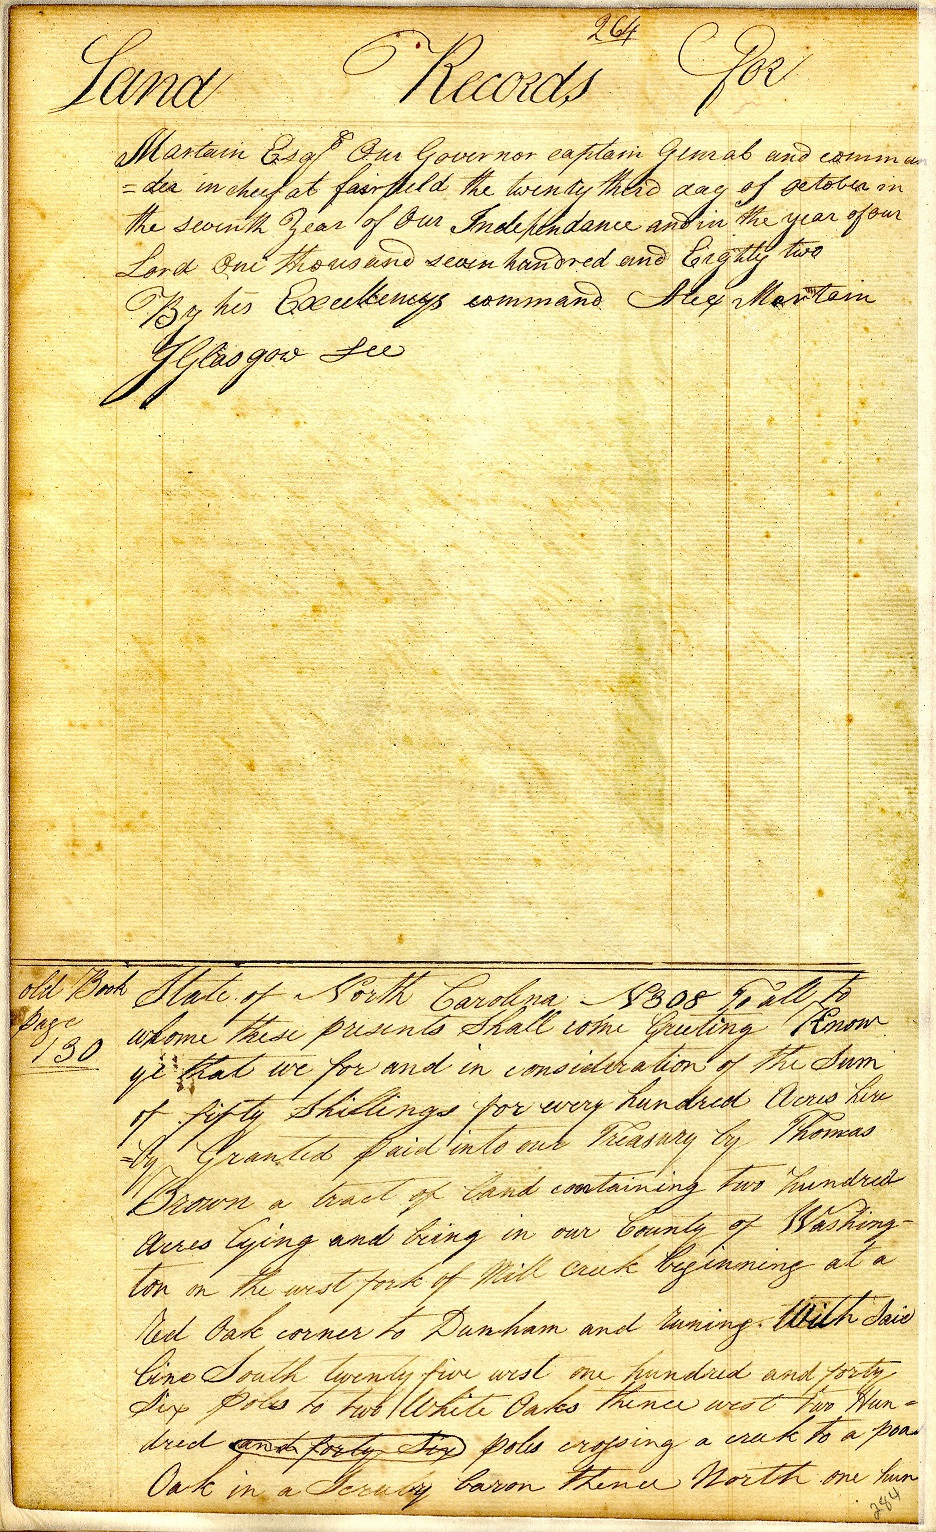 264
Land Records For
Martain Esqr Our Governor captain Genral and comman
=der in cheef at fairfield the twenty third day of october in
the seventh Year of Our Independance and in the year of our
Lord One thousand seven hundred and Eighty two
By his Excellencys command Alex Martain
J Glasgow Sec
old Book
page
130
State of North Carolina N308 To all to
whome these presents Shall come Greeting Know
ye that we for and in consideration of the Sum
of fifty Shillings for every hundred Acres here
=by Granted paid into our Treasury by Thomas
Brown a tract of land containing two hundred
Acres lying and being in our County of Washing-
ton on the west fork of Mill creek beginning at a
Red Oak corner to Dunham and runing With Said
line South twenty five west one hundred and forty
Six poles to two White Oaks thence west two Hun=
dred and forty Six poles crossing a creek to a poa
Oak in a Scruby baron thence North one hun
284